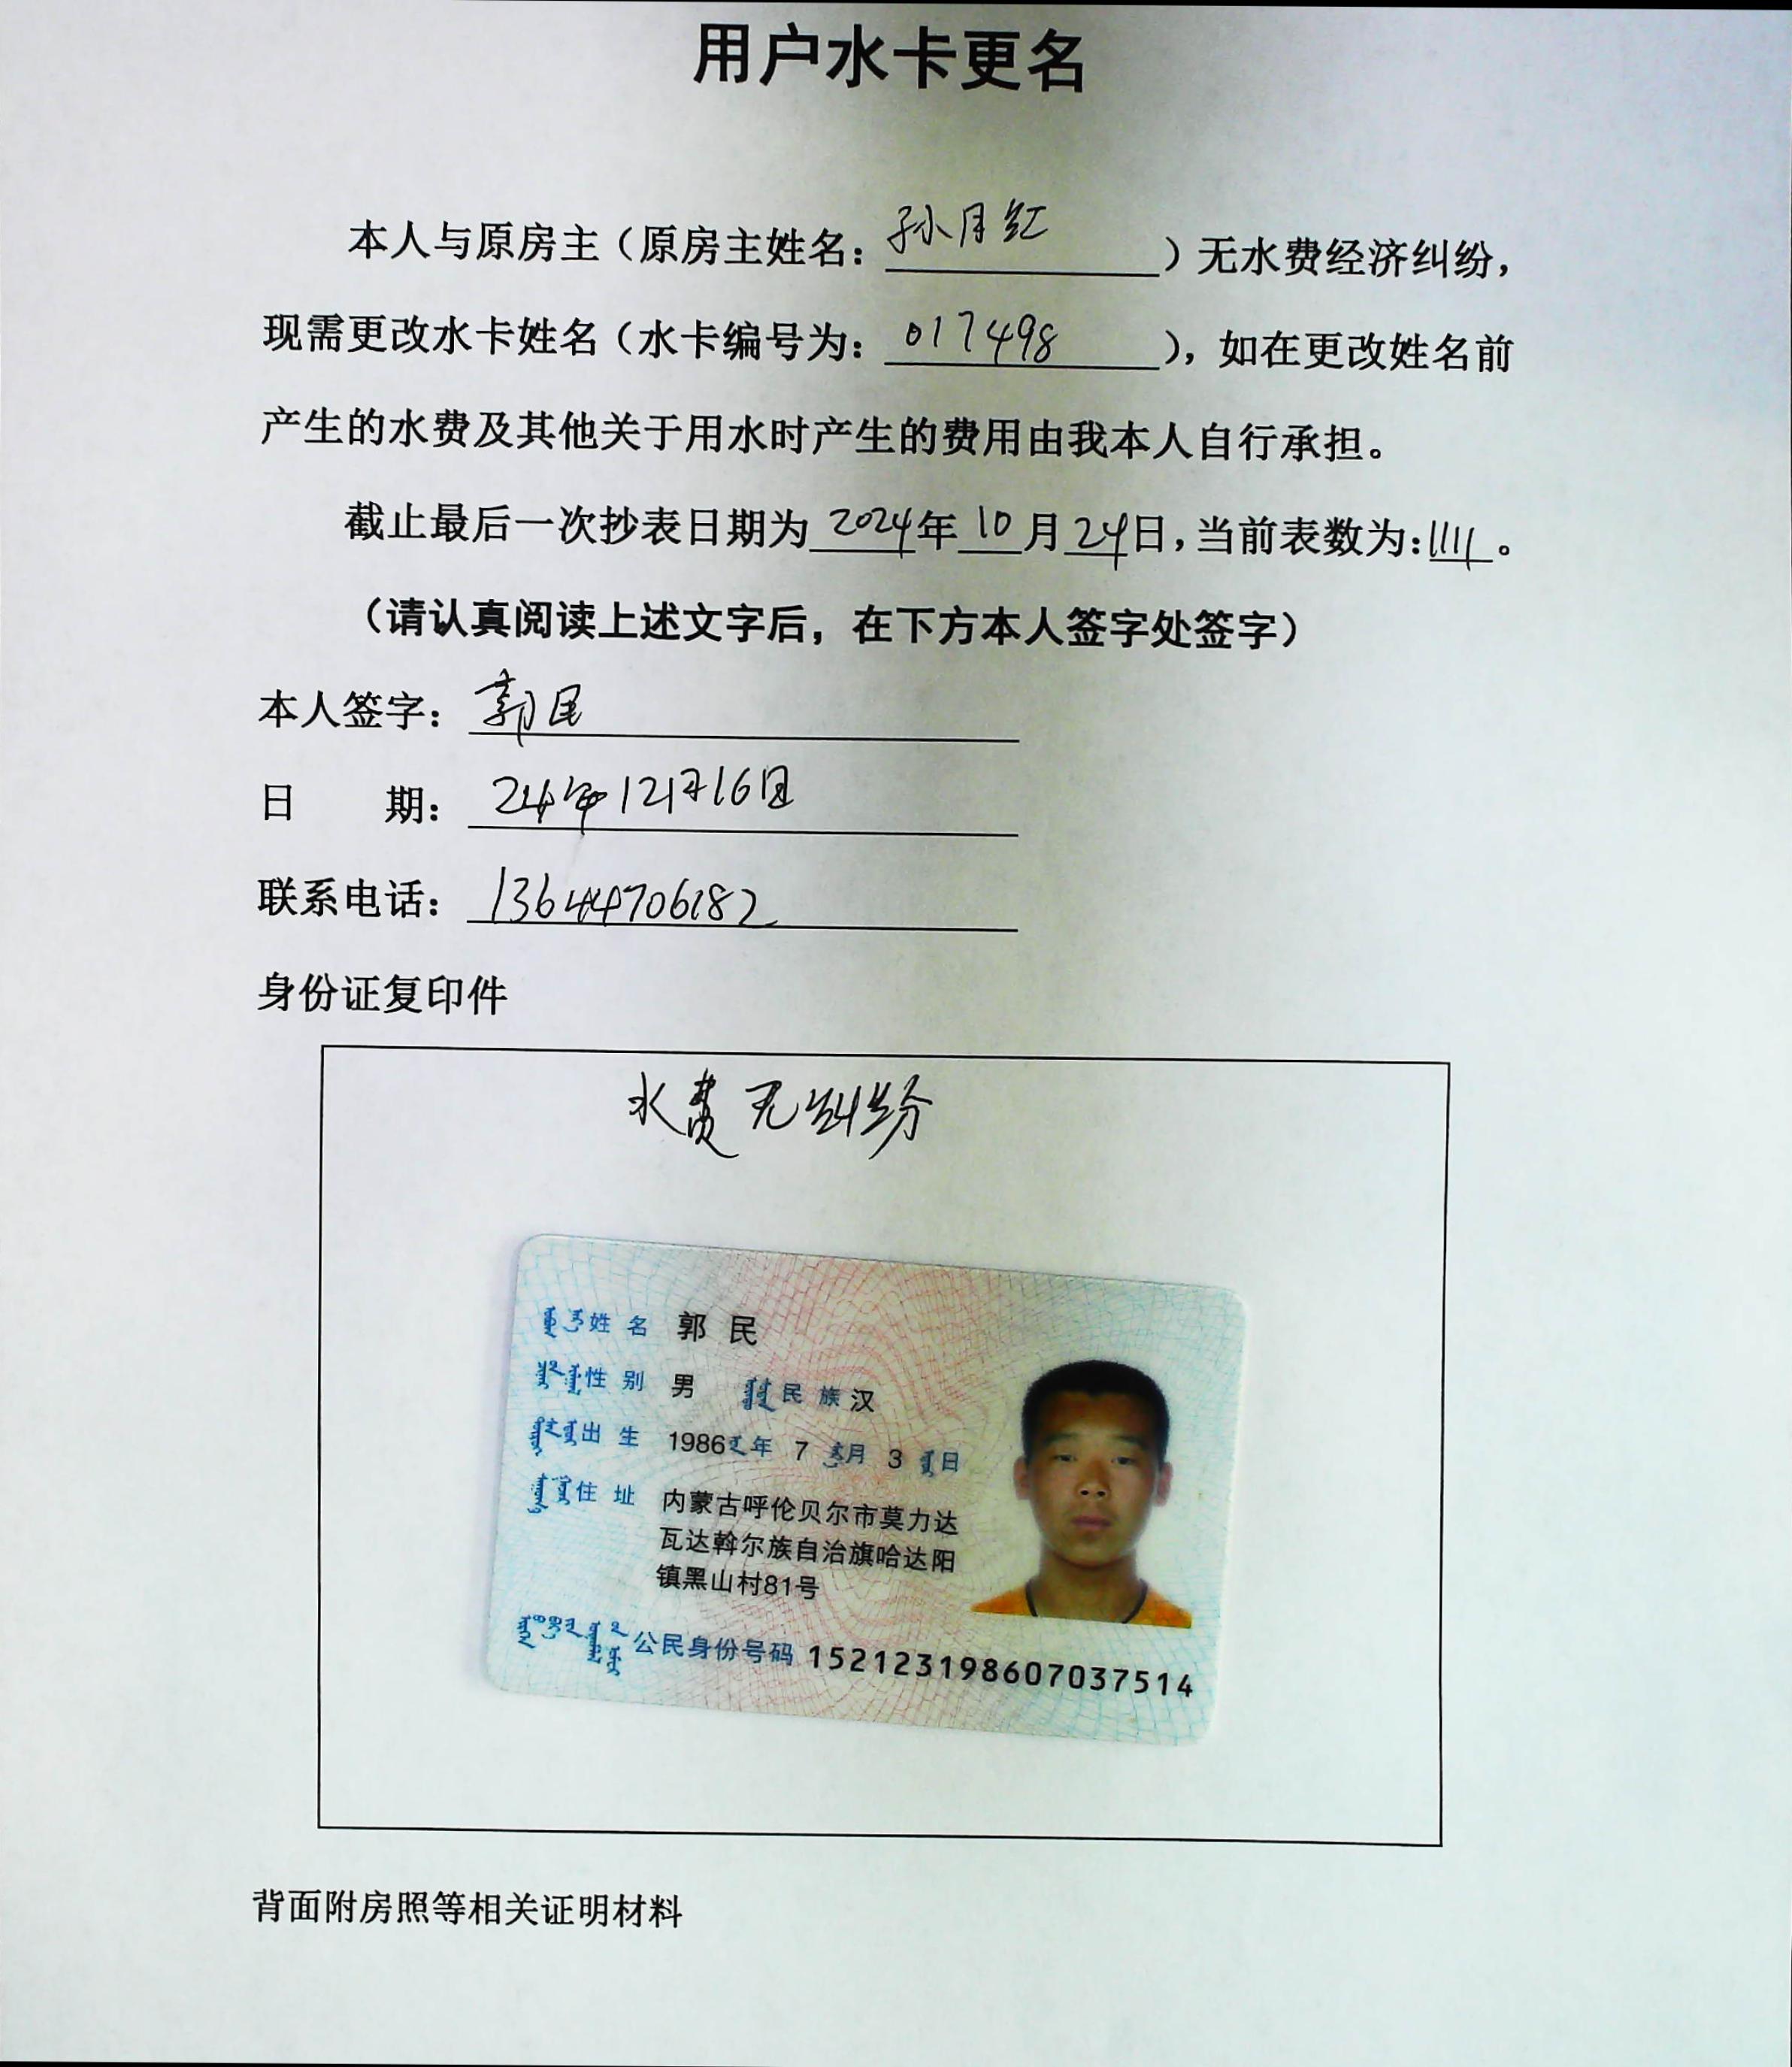 用户水卡更名
本人与原房主（原房主姓名：孙月红）无水费经济纠纷，
现需更改水卡姓名（水卡编号为：017498），如在更改姓名前
产生的水费及其他关于用水时产生的费用由我本人自行承担。
截止最后一次抄表日期为2024年10月24日，当前表数为：。
（请认真阅读上述文字后，在下方本人签字处签字）
本人签字：郭民
日 期：24年12月16日
联系电话：13644706182
身份证复印件
水费无纠纷
姓名 郭民
性别 男 民族 汉
出生 1986年7月3日
住址 内蒙古呼伦贝尔市莫力达
瓦达斡尔族自治旗哈达阳
镇黑山村81号
公民身份号码 152123198607037514
背面附房照等相关证明材料